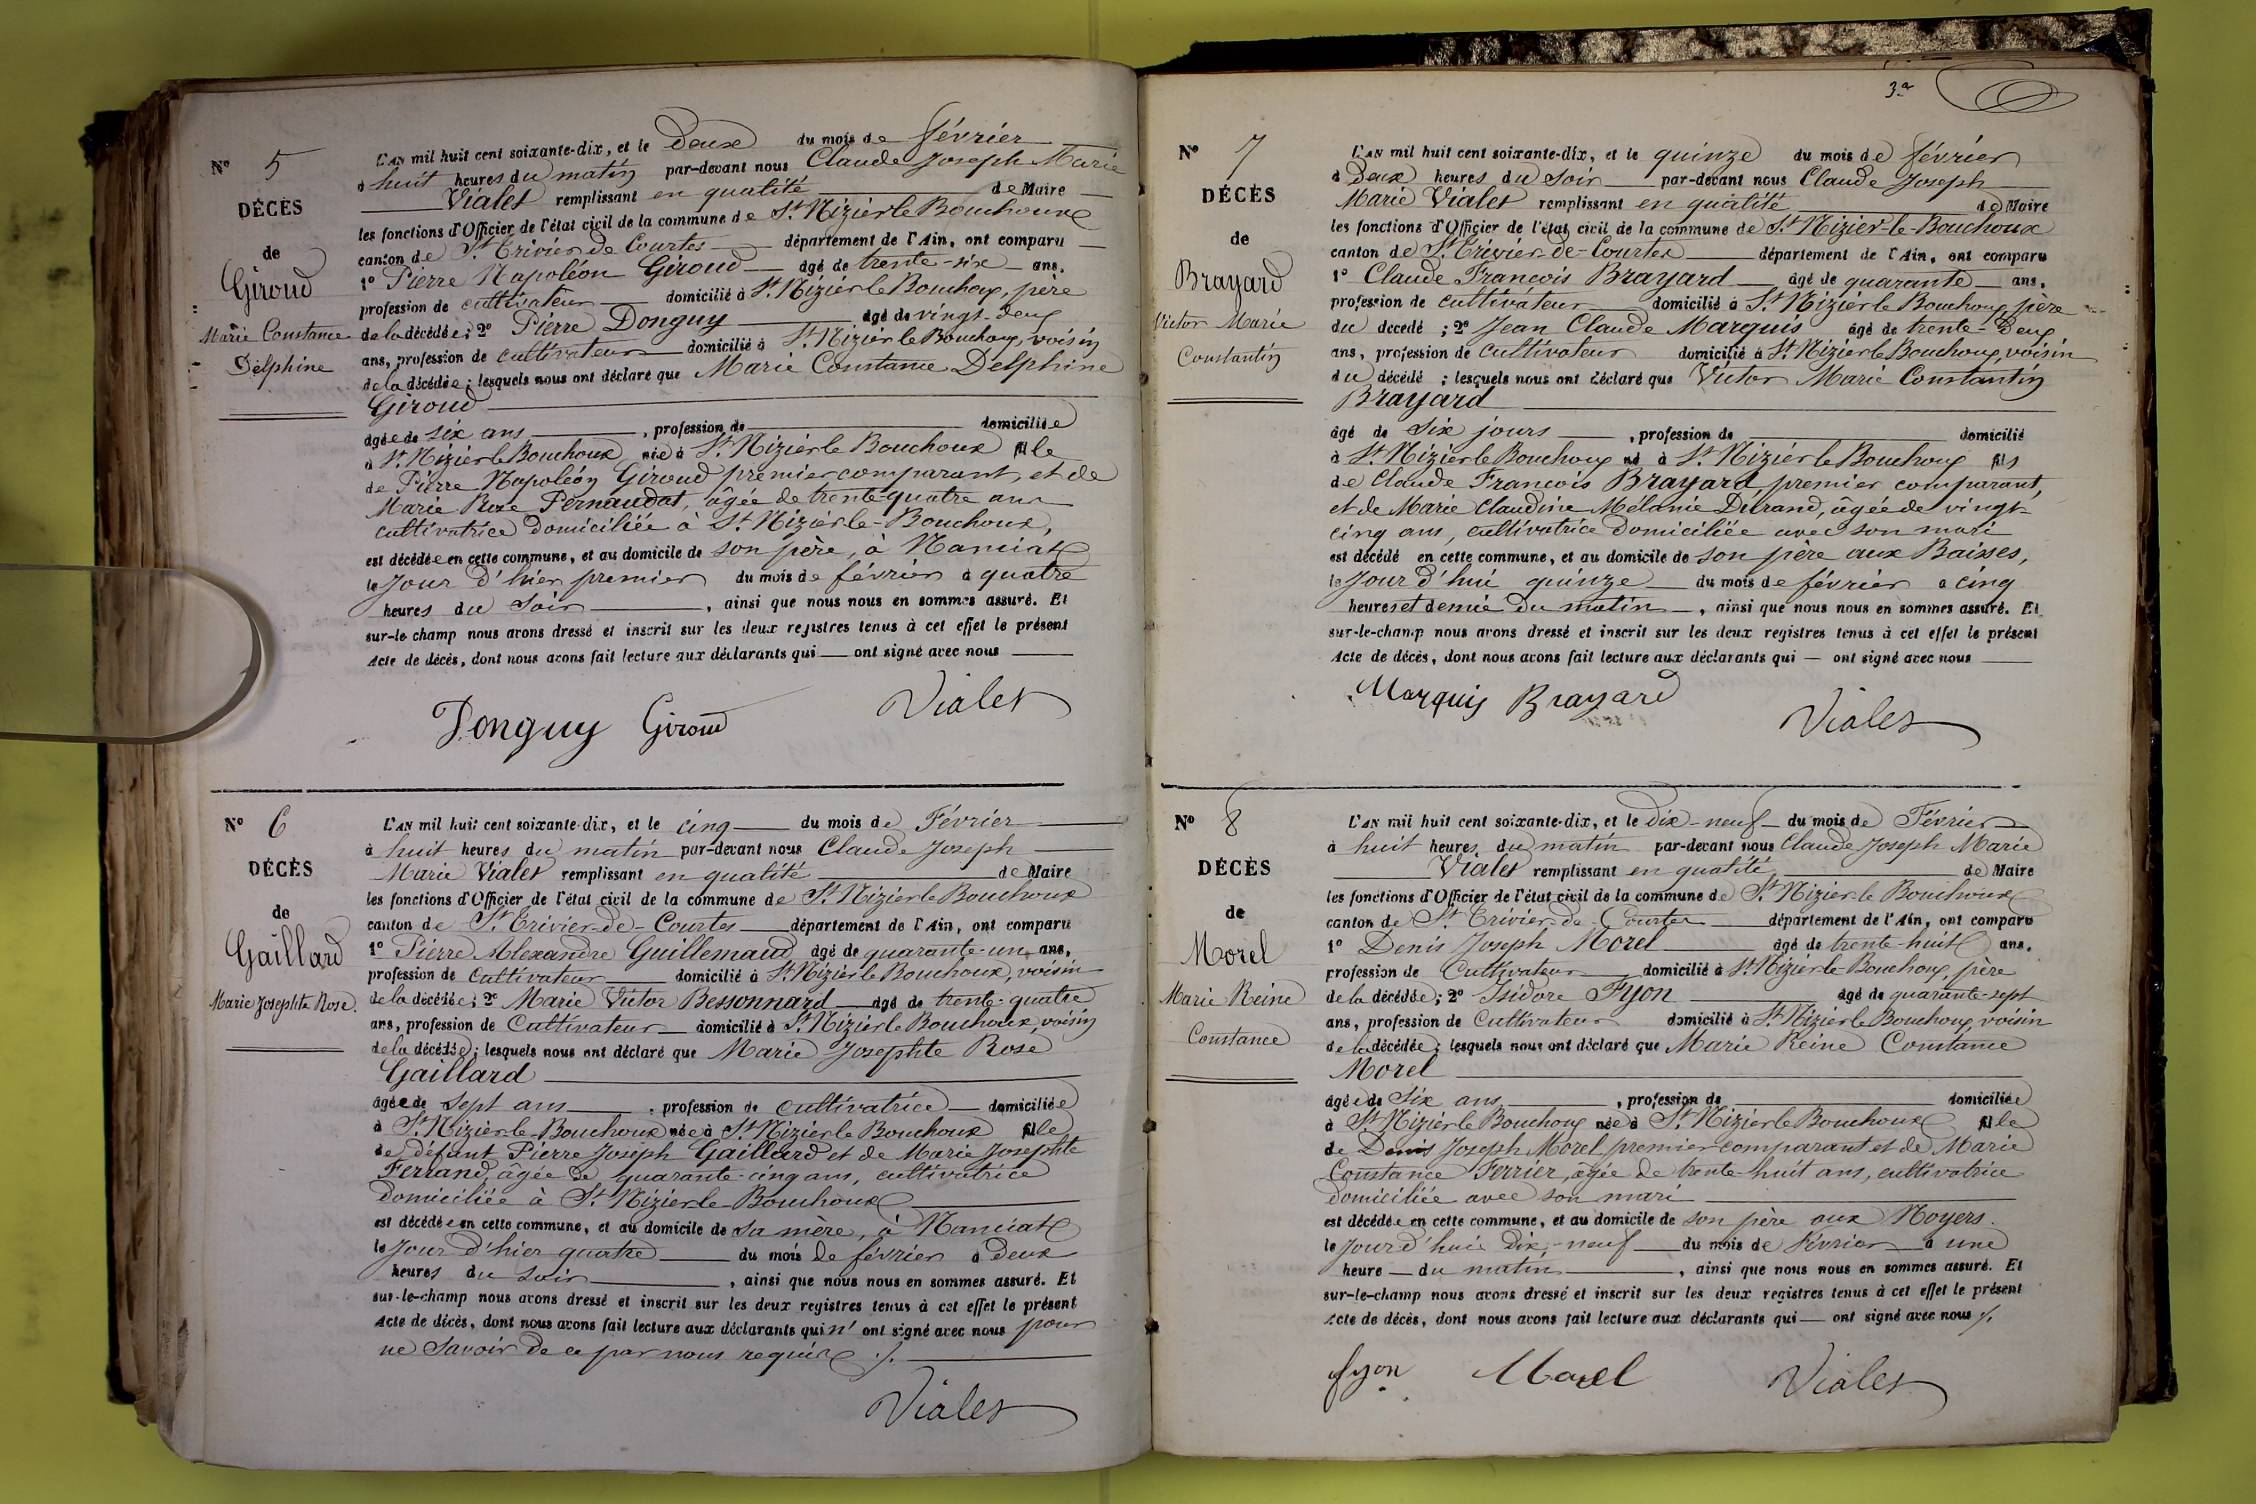 N° 5
DÉCÈS
de
Giroud
Marie Constance
Delphine
L'AN mil huit cent soixante-dix, et le Deux du mois de février
à huit heures du matin par-devant nous Claude Joseph Marie
Vialet remplissant en qualité de Maire
les fonctions d'Officier de l'état civil de la commune de St Nizier le Bouchoux
canton de St Trivier de Courtes département de l'Ain, ont comparu
1° Pierre Napoléon Giroud âgé de trente-six ans,
profession de cultivateur domicilié à St Nizier le Bouchoux, père
de la décédée; 2° Pierre Donguy âgé de vingt-deux
ans, profession de cultivateur domicilié à St Nizier le Bouchoux, voisin
de la décédée; lesquels nous ont déclaré que Marie Constance Delphine
Giroud
âgée de six ans, profession de domiciliée
à St Nizier le Bouchoux née à St Nizier le Bouchoux fille
de Pierre Napoléon Giroud premier comparant, et de
Marie Rose Pernaudat, âgée de trente-quatre ans
cultivatrice domiciliée à St Nizier-le-Bouchoux,
est décédée en cette commune, et au domicile de son père, à Nanciat
le Jour d'hier premier du mois de février à quatre
heures du soir, ainsi que nous nous en sommes assuré. Et
sur-le-champ nous avons dressé et inscrit sur les deux registres tenus à cet effet le présent
Acte de décès, dont nous avons fait lecture aux déclarants qui ont signé avec nous
Donguy Giroud Vialet
N° 6
DÉCÈS
de
Gaillard
Marie Josephte Rose.
L'AN mil huit cent soixante-dix, et le cinq du mois de Février
à huit heures du matin par-devant nous Claude Joseph
Marie Vialet remplissant en qualité de Maire
les fonctions d'Officier de l'état civil de la commune de St Nizier le Bouchoux
canton de St Trivier-de-Courtes département de l'Ain, ont comparu
1° Pierre Alexandre Guillemaud âgé de quarante-un ans,
profession de cultivateur domicilié à St Nizier le Bouchoux, voisin
de la décédée; 2° Marie Victor Bessonnard âgé de trente-quatre
ans, profession de Cultivateur domicilié à St Nizier le Bouchoux, voisin
de la décédée; lesquels nous ont déclaré que Marie Josephte Rose
Gaillard
âgée de sept ans, profession de cultivatrice domiciliée
à St Nizier-le-Bouchoux née à St Nizier le Bouchoux fille
de défunt Pierre Joseph Gaillard et de Marie Josephte
Ferrand, âgée de quarante-cinq ans, cultivatrice
domiciliée à St Nizier-le-Bouchoux
est décédée en cette commune, et au domicile de sa mère, à Nanciat
le Jour d'hier quatre du mois de février à deux
heures du soir, ainsi que nous nous en sommes assuré. Et
sur-le-champ nous avons dressé et inscrit sur les deux registres tenus à cet effet le présent
Acte de décès, dont nous avons fait lecture aux déclarants qui n'ont signé avec nous pour
ne savoir de ce par nous requis ./.
Vialet
3e
N° 7
DÉCÈS
de
Brayard
Victor Marie
Constantin
L'AN mil huit cent soixante-dix, et le quinze du mois de février
à Deux heures du soir par-devant nous Claude Joseph
Marie Vialet remplissant en qualité de Maire
les fonctions d'Officier de l'état civil de la commune de St Nizier-le-Bouchoux
canton de St Trivier-de-Courtes département de l'Ain, ont comparu
1° Claude François Brayard âgé de quarante ans,
profession de cultivateur domicilié à St Nizier le Bouchoux, père
du décédé; 2° Jean Claude Marquis âgé de trente-deux
ans, profession de cultivateur domicilié à St Nizier le Bouchoux, voisin
du décédé; lesquels nous ont déclaré que Victor Marie Constantin
Brayard
âgé de six jours, profession de domicilié
à St Nizier le Bouchoux né à St Nizier le Bouchoux fils
de Claude François Brayard premier comparant,
et de Marie Claudine Mélanie Durand, âgée de vingt-
cinq ans, cultivatrice domiciliée avec son mari
est décédé en cette commune, et au domicile de son père aux Baisses,
le Jour d'hui quinze du mois de février à cinq
heures et demie du matin, ainsi que nous nous en sommes assuré. Et
sur-le-champ nous avons dressé et inscrit sur les deux registres tenus à cet effet le présent
Acte de décès, dont nous avons fait lecture aux déclarants qui ont signé avec nous
Marquis Brayard Vialet
N° 8
DÉCÈS
de
Morel
Marie Reine
Constance
L'AN mil huit cent soixante-dix, et le Dix-neuf du mois de Février
à huit heures du matin par-devant nous Claude Joseph Marie
Vialet remplissant en qualité de Maire
les fonctions d'Officier de l'état civil de la commune de St Nizier-le Bouchoux
canton de St Trivier-de-Courtes département de l'Ain, ont comparu
1° Denis Joseph Morel âgé de trente-huit ans,
profession de Cultivateur domicilié à St Nizier-le-Bouchoux, père
de la décédée; 2° Isidore Fyon âgé de quarante-sept
ans, profession de Cultivateur domicilié à St Nizier le Bouchoux, voisin
de la décédée; lesquels nous ont déclaré que Marie Reine Constance
Morel
âgée de Six ans, profession de domiciliée
à St Nizier le Bouchoux née à St Nizier le Bouchoux fille
de Denis Joseph Morel premier comparant et de Marie
Constance Ferrier, âgée de trente-huit ans, cultivatrice
domiciliée avec son mari
est décédée en cette commune, et au domicile de son père aux Noyers.
le Jour d'hui Dix-neuf du mois de février à une
heure du matin, ainsi que nous nous en sommes assuré. Et
sur-le-champ nous avons dressé et inscrit sur les deux registres tenus à cet effet le présent
Acte de décès, dont nous avons fait lecture aux déclarants qui ont signé avec nous ./.
fyon Morel Vialet